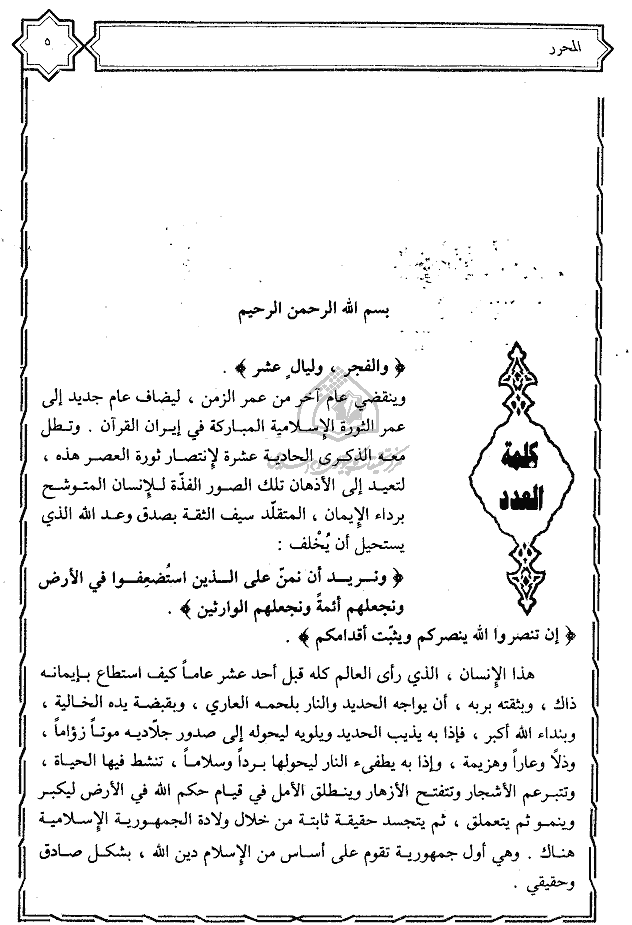 المحرر
٥
بسم الله الرحمن الرحيم
﴿ والفجر ، وليالٍ عشر ﴾ .
وينقضي عام آخر من عمر الزمن ، ليضاف عام جديد إلى
عمر الثورة الإسلامية المباركة في إيران القرآن . وتطل
معه الذكرى الحادية عشرة لإنتصار ثورة العصر هذه ،
لتعيد إلى الأذهان تلك الصور الفذّة للإنسان المتوشح
برداء الإيمان ، المتقلّد سيف الثقة بصدق وعد الله الذي
يستحيل أن يُخْلف :
﴿ ونريد أن نمنّ على الذين استُضعِفوا في الأرض
ونجعلهم أئمةً ونجعلهم الوارثين ﴾ .
﴿ إن تنصروا الله ينصركم ويثبّت أقدامكم ﴾ .
كلمة
العدد
هذا الإنسان ، الذي رأى العالم كله قبل أحد عشر عاماً كيف استطاع بإيمانه
ذاك ، وبثقته بربه ، أن يواجه الحديد والنار بلحمه العاري ، وبقبضة يده الخالية ،
وبنداء الله أكبر ، فإذا به يذيب الحديد ويلويه ليحوله إلى صدور جلّاديه موتاً زؤاماً ،
وذلاً وعاراً وهزيمة ، وإذا به يطفىء النار ليحولها برداً وسلاماً ، تنشط فيها الحياة ،
وتتبرعم الأشجار وتتفتح الأزهار وينطلق الأمل في قيام حكم الله في الأرض ليكبر
وينمو ثم يتعملق ، ثم يتجسد حقيقة ثابتة من خلال ولادة الجمهورية الإسلامية
هناك . وهي أول جمهورية تقوم على أساس من الإسلام دين الله ، بشكل صادق
وحقيقي .